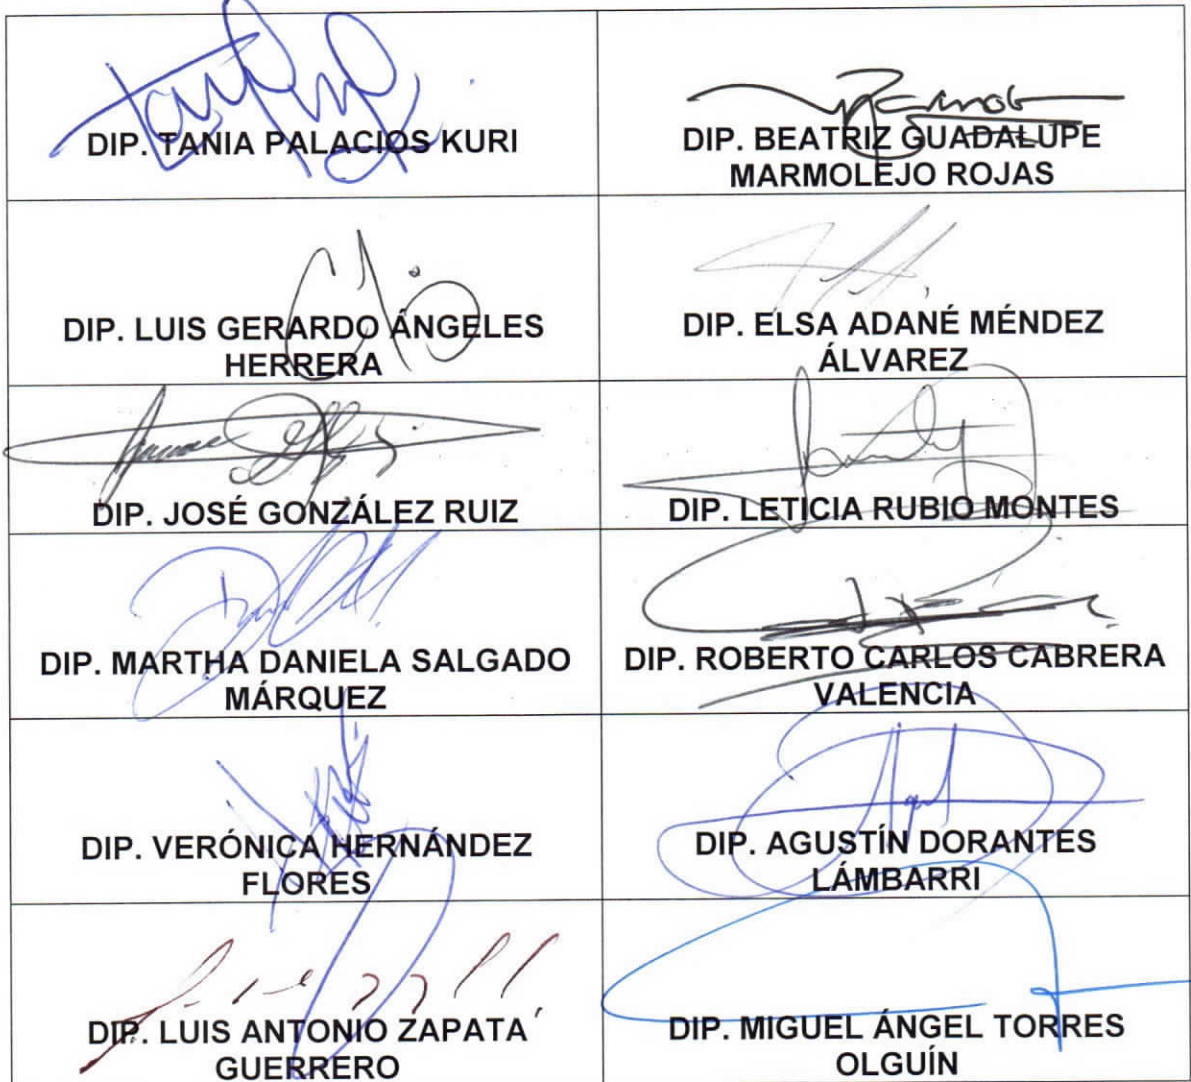 DIP. TANIA PALACIOS KURI
DIP. BEATRIZ GUADALUPE
MARMOLEJO ROJAS
DIP. LUIS GERARDO ÁNGELES
HERRERA
DIP. ELSA ADANÉ MÉNDEZ
ÁLVAREZ
DIP. JOSÉ GONZÁLEZ RUIZ
DIP. LETICIA RUBIO MONTES
DIP. MARTHA DANIELA SALGADO
MÁRQUEZ
DIP. ROBERTO CARLOS CABRERA
VALENCIA
DIP. VERÓNICA HERNÁNDEZ
FLORES
DIP. AGUSTÍN DORANTES
LÁMBARRI
DIP. LUIS ANTONIO ZAPATA
GUERRERO
DIP. MIGUEL ÁNGEL TORRES
OLGUÍN